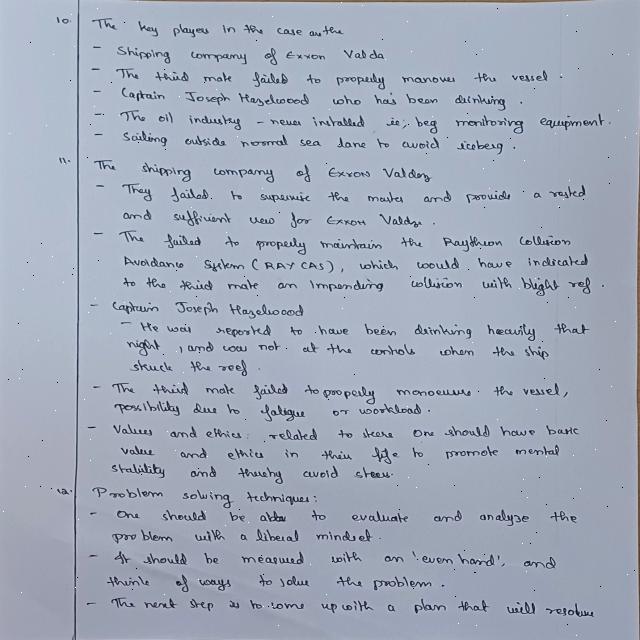 10. The key players in the case are the
- Shipping company of Exxon Valda
- The third mate failed to properly manover the vessel.
- Captain Joseph Hazelwood who has been drinking.
- The oil industry - never installed ie; beg monitoring equipment.
- Sailing outside normal sea lane to avoid iceberg.
11. The shipping company of Exxon Valdez
- They failed to supervise the master and provide a rested
and suffivent crew for Exxon Valdze.
- The failed to properly maintain the Raytheon Collision
Avoidance System (RAYCAS), which would have indicated
to the third mate an impending collision with blight ref.
- Captain Joseph Hazelwood
- He was reported to have been drinking heavily that
night, and was not at the controls when the ship
stuck the reef.
- The third mate failed to properly monoeuvre the vessel,
possibility due to fatigue or workload.
- Values and ethics: related to One should have basic
value and ethics in their life to promote mental
stability and thereby avoid
12. Problem solving techniques:
- One should be to evaluate and analyze the
problem with a liberal mindset.
- It should be measured with an 'even hand', and
think of ways to solve the problem.
- The next step is to come up with a plan that will resolve